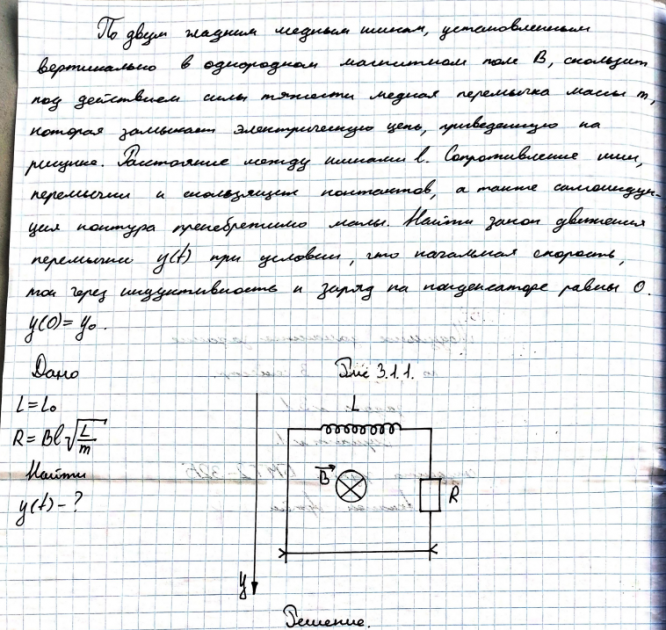 По двум гладким медным шинам, установленным
вертикально в однородном магнитном поле B, скользит
под действием силы тяжести медная перемычка массы m,
которая замыкает электрическую цепь, приведенную на
рисунке. Расстояние между шинами l. Сопротивление шин,
перемычки и скользящих контактов, а также самоиндук-
ция контура пренебрежимо малы. Найти закон движения
перемычки y(t) при условии, что начальная скорость,
ток через индуктивность и заряд на конденсаторе равны 0.
y(0) = y₀.
Дано
Рис 3.1.1.
L = L₀
L
R = Bl√(L/m)
Найти
B
R
y(t) - ?
y
Решение.